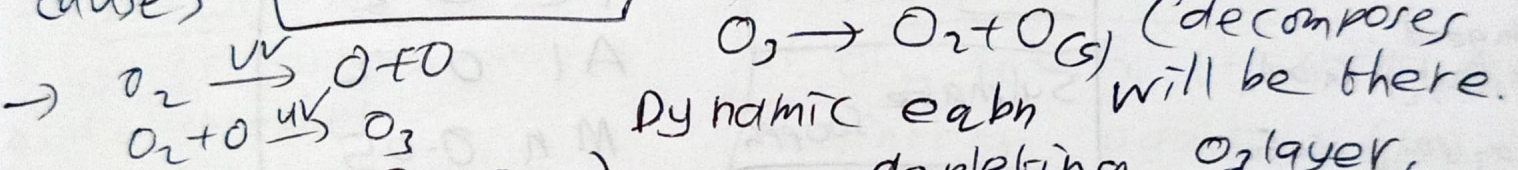 → O₂ —UV→ O+O
O₂+O —UV→ O₃
O₃ → O₂+O(s) (decomposes
Dynamic eqbn will be there.
depleting O₃ layer.